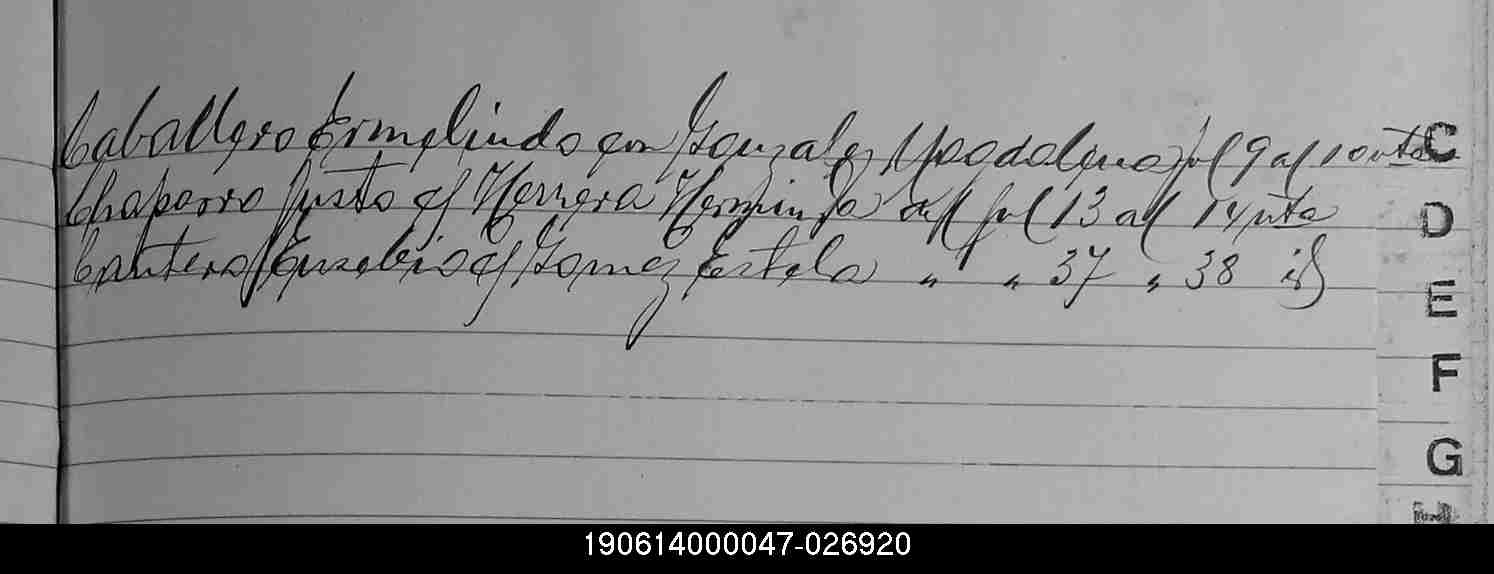 Caballero Ermelindo con Gonzalez Magdalena fol 9 al 10 vta C
Chaparro Justo c/ Herrera Herminda del fol 13 al 14 vta
D
Cantero Eusebio c/ Gomez Estela " " 37 " 38 id
E
F
G
190614000047-026920